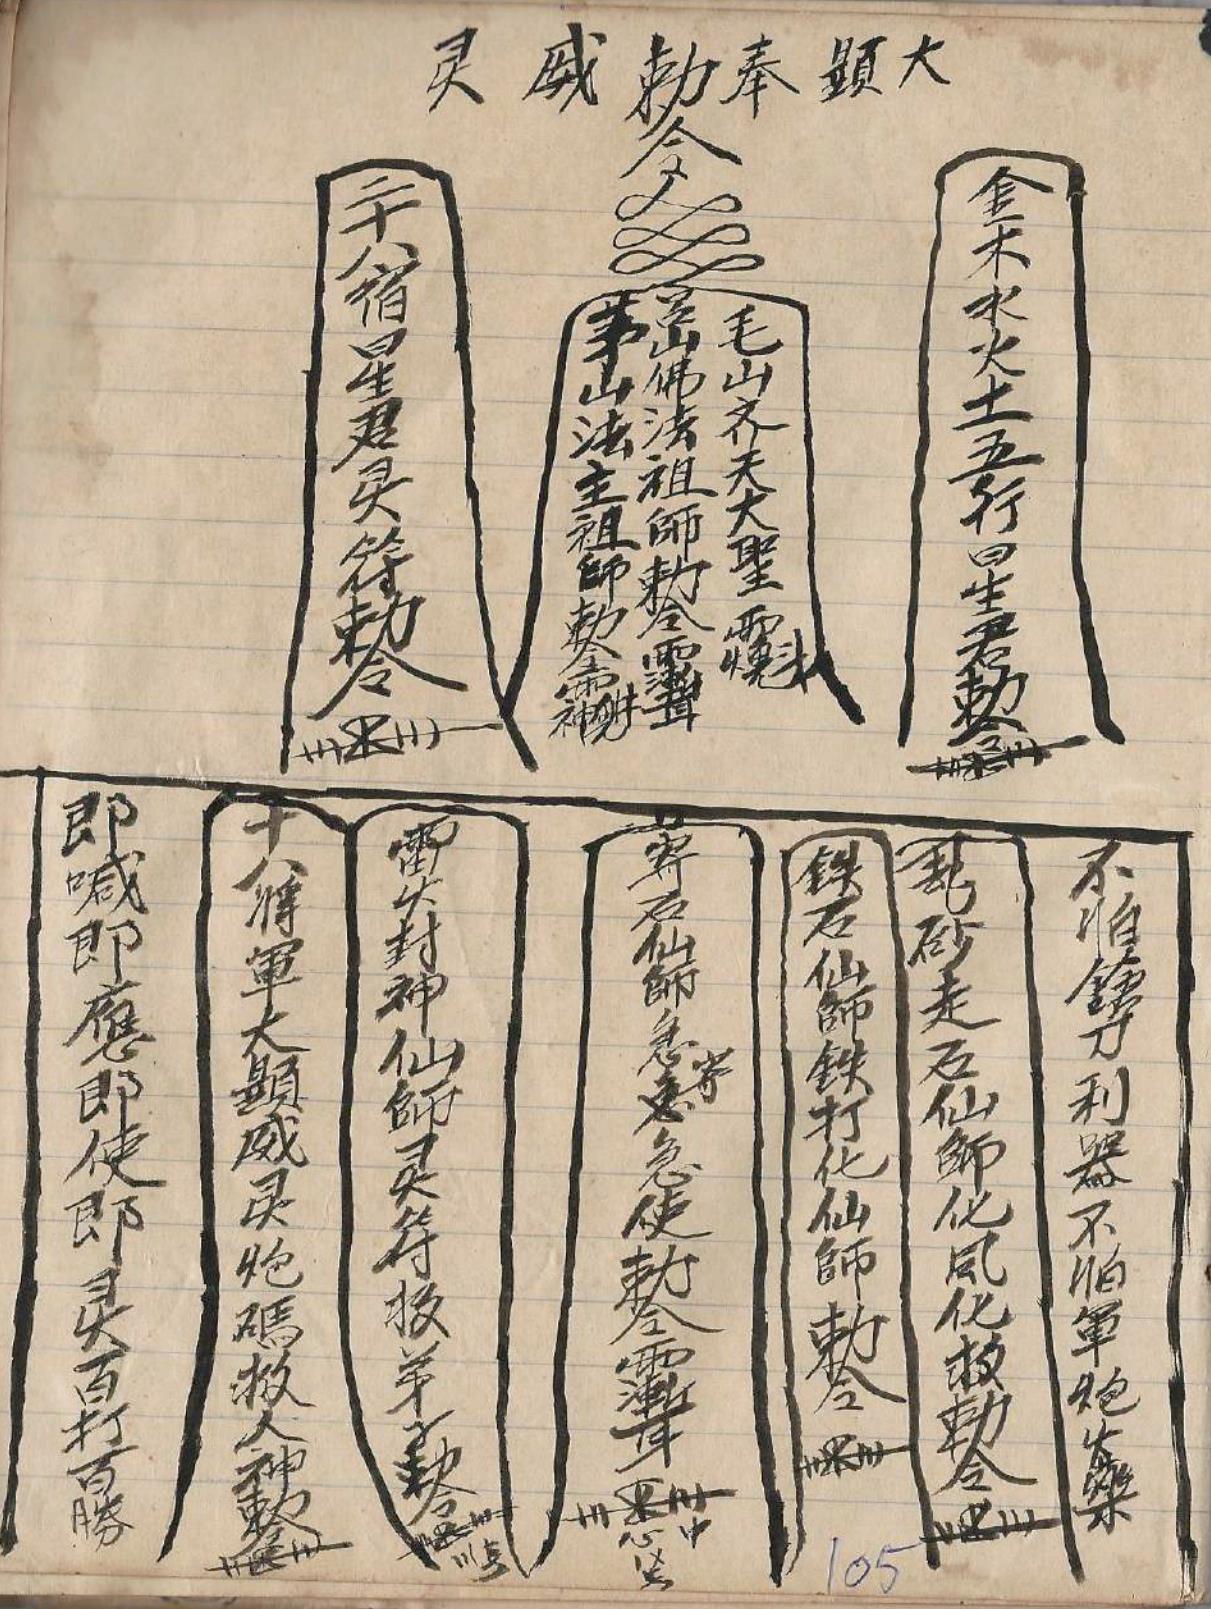 大顯奉勅威灵
勅令
金木水火土五行星君勅令
毛山齐天大聖
山佛法祖師勅令
茅山法主祖師勅令
二十八宿星君灵符勅令
不怕鎗刀利器不怕軍炮火藥
乱砂走石仙師化風化救勅令
鉄石仙師鉄打化仙師勅令
石仙師急急急使勅令
雷火封神仙師灵符救弟子勅令
十八將軍大顯威灵炮碼救人神勅令
即喊即應即使即灵百打百勝
105